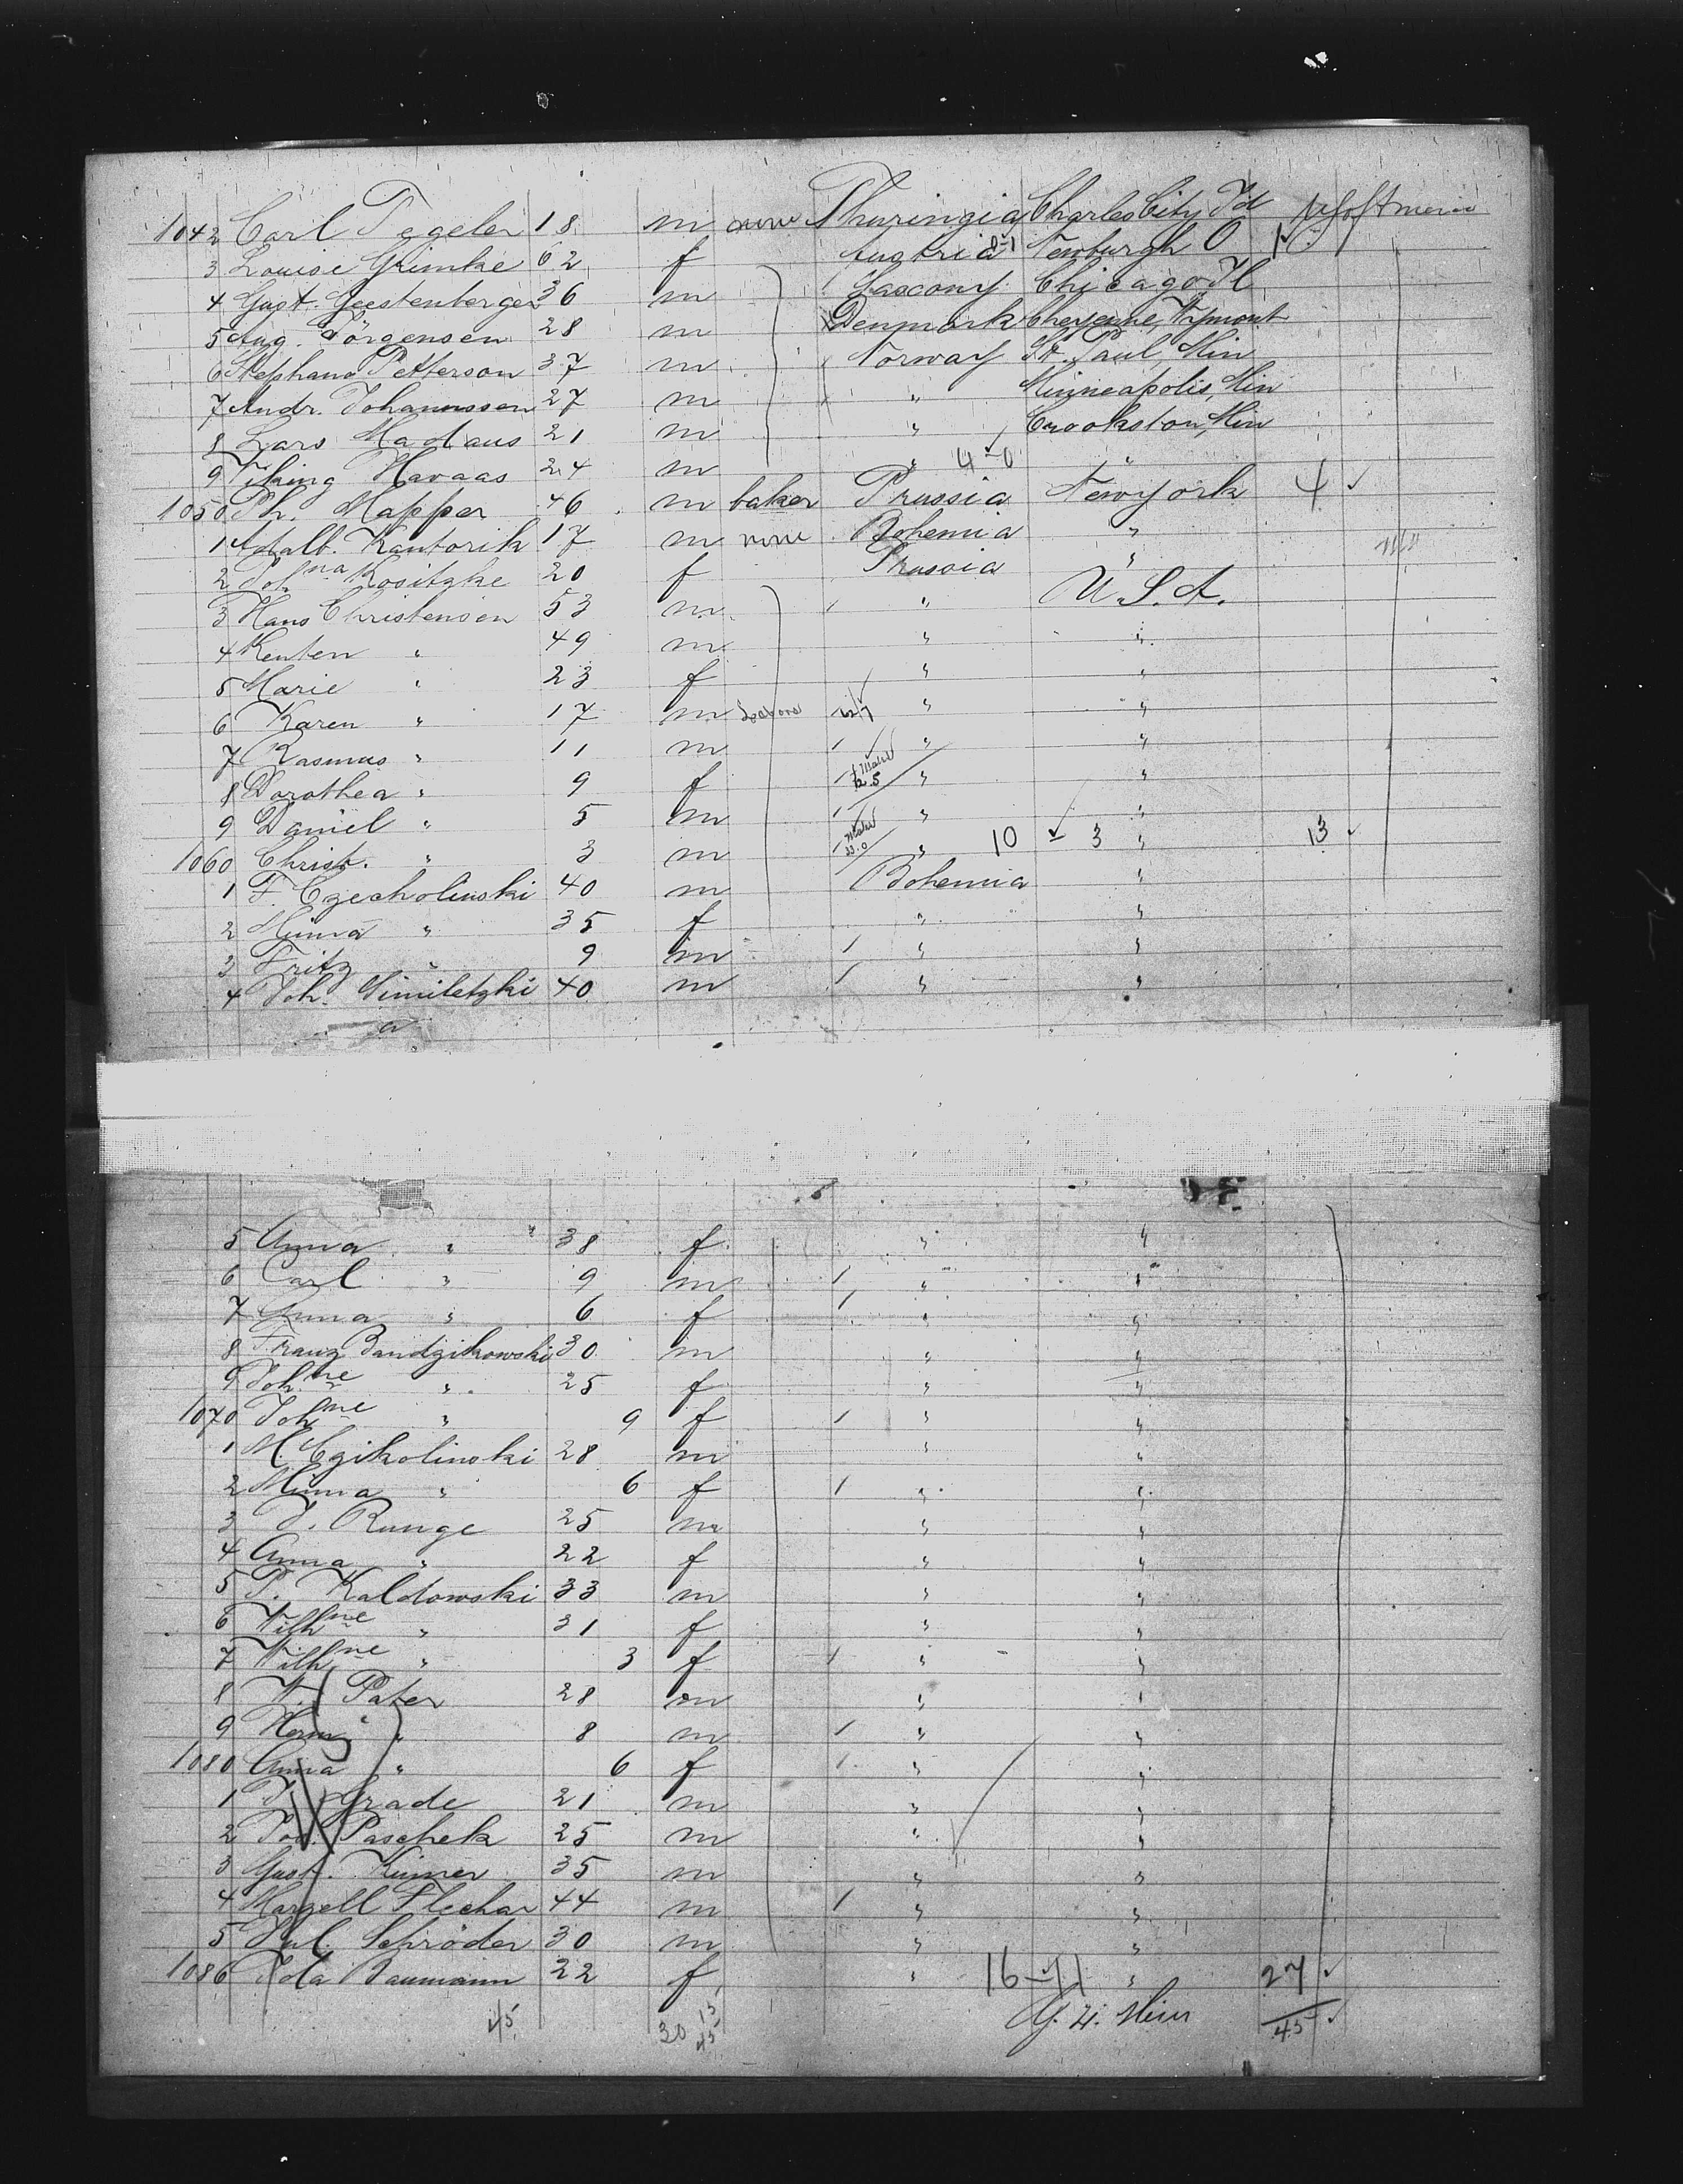 1042 Carl Tegeler 18 m none Thuringia Charles City Id U.S. of America
3 Louise Grimke 62 f Austria 0-1 Newburgh O 1 ✓
4 Gust. Geestenberger 36 m Saxony Chicago Il
5 Aug. Jörgensen 28 m Denmark Cheyenne, Wymont
6 Stephano Petterson 37 m Norway St. Paul, Min
7 Andr. Johannssen 27 m " Minneapolis, Min
8 Lars Madaus 21 m " Crookston, Min
9 Viking Havaas 24 m " 4-0 "
1050 Ph. Mapper 46 m baker Prussia New york 4 ✓
1 Adalb. Kantorik 17 m none Bohemia "
2 Johna Kositzke 20 f Prussia "
3 Hans Christensen 53 m " U.S.A.
4 Kenten " 49 m " "
5 Marie " 23 f " "
6 Karen " 17 m " "
7 Rasmus " 11 m 1 " "
8 Dorothea " 9 f 1 " "
9 Daniel " 5 m 1 " "
1060 Christ. " 3 m 1 " 10 - 3 " 13 ✓
1 F. Czecholinski 40 m Bohemia "
2 Minna " 35 f " "
3 Fritz " 9 m 1 " "
4 Joh. Similetzki 40 m 1 " "
5 Anna " 38 f " "
6 Carl " 9 m 1 " "
7 Anna " 6 f 1 " "
8 Franz Bandzikowski 30 m " "
9 Johne " 25 f " "
1070 Johne " 9 f 1 " "
1 M. Czikolinski 28 m " "
2 Minna " 6 f 1 " "
3 J. Runge 25 m " "
4 Anna " 22 f " "
5 P. Kaldowski 33 m " "
6 Wilhne " 31 f " "
7 Wilhne " 3 f 1 " "
8 W. Pater 28 m " "
9 Herm " 8 m 1 " "
1080 Anna " 6 f 1 " "
1 J. Grade 21 m " "
2 Paschek 25 m " "
3 Gust. Kimer 35 m " "
4 Marzell Flechar 44 m 1 " "
5 Jul. Schröder 30 m " "
1086 Ida Baumann 22 f " 16-11 " 27 ✓
45 30 15 45 45 ✓